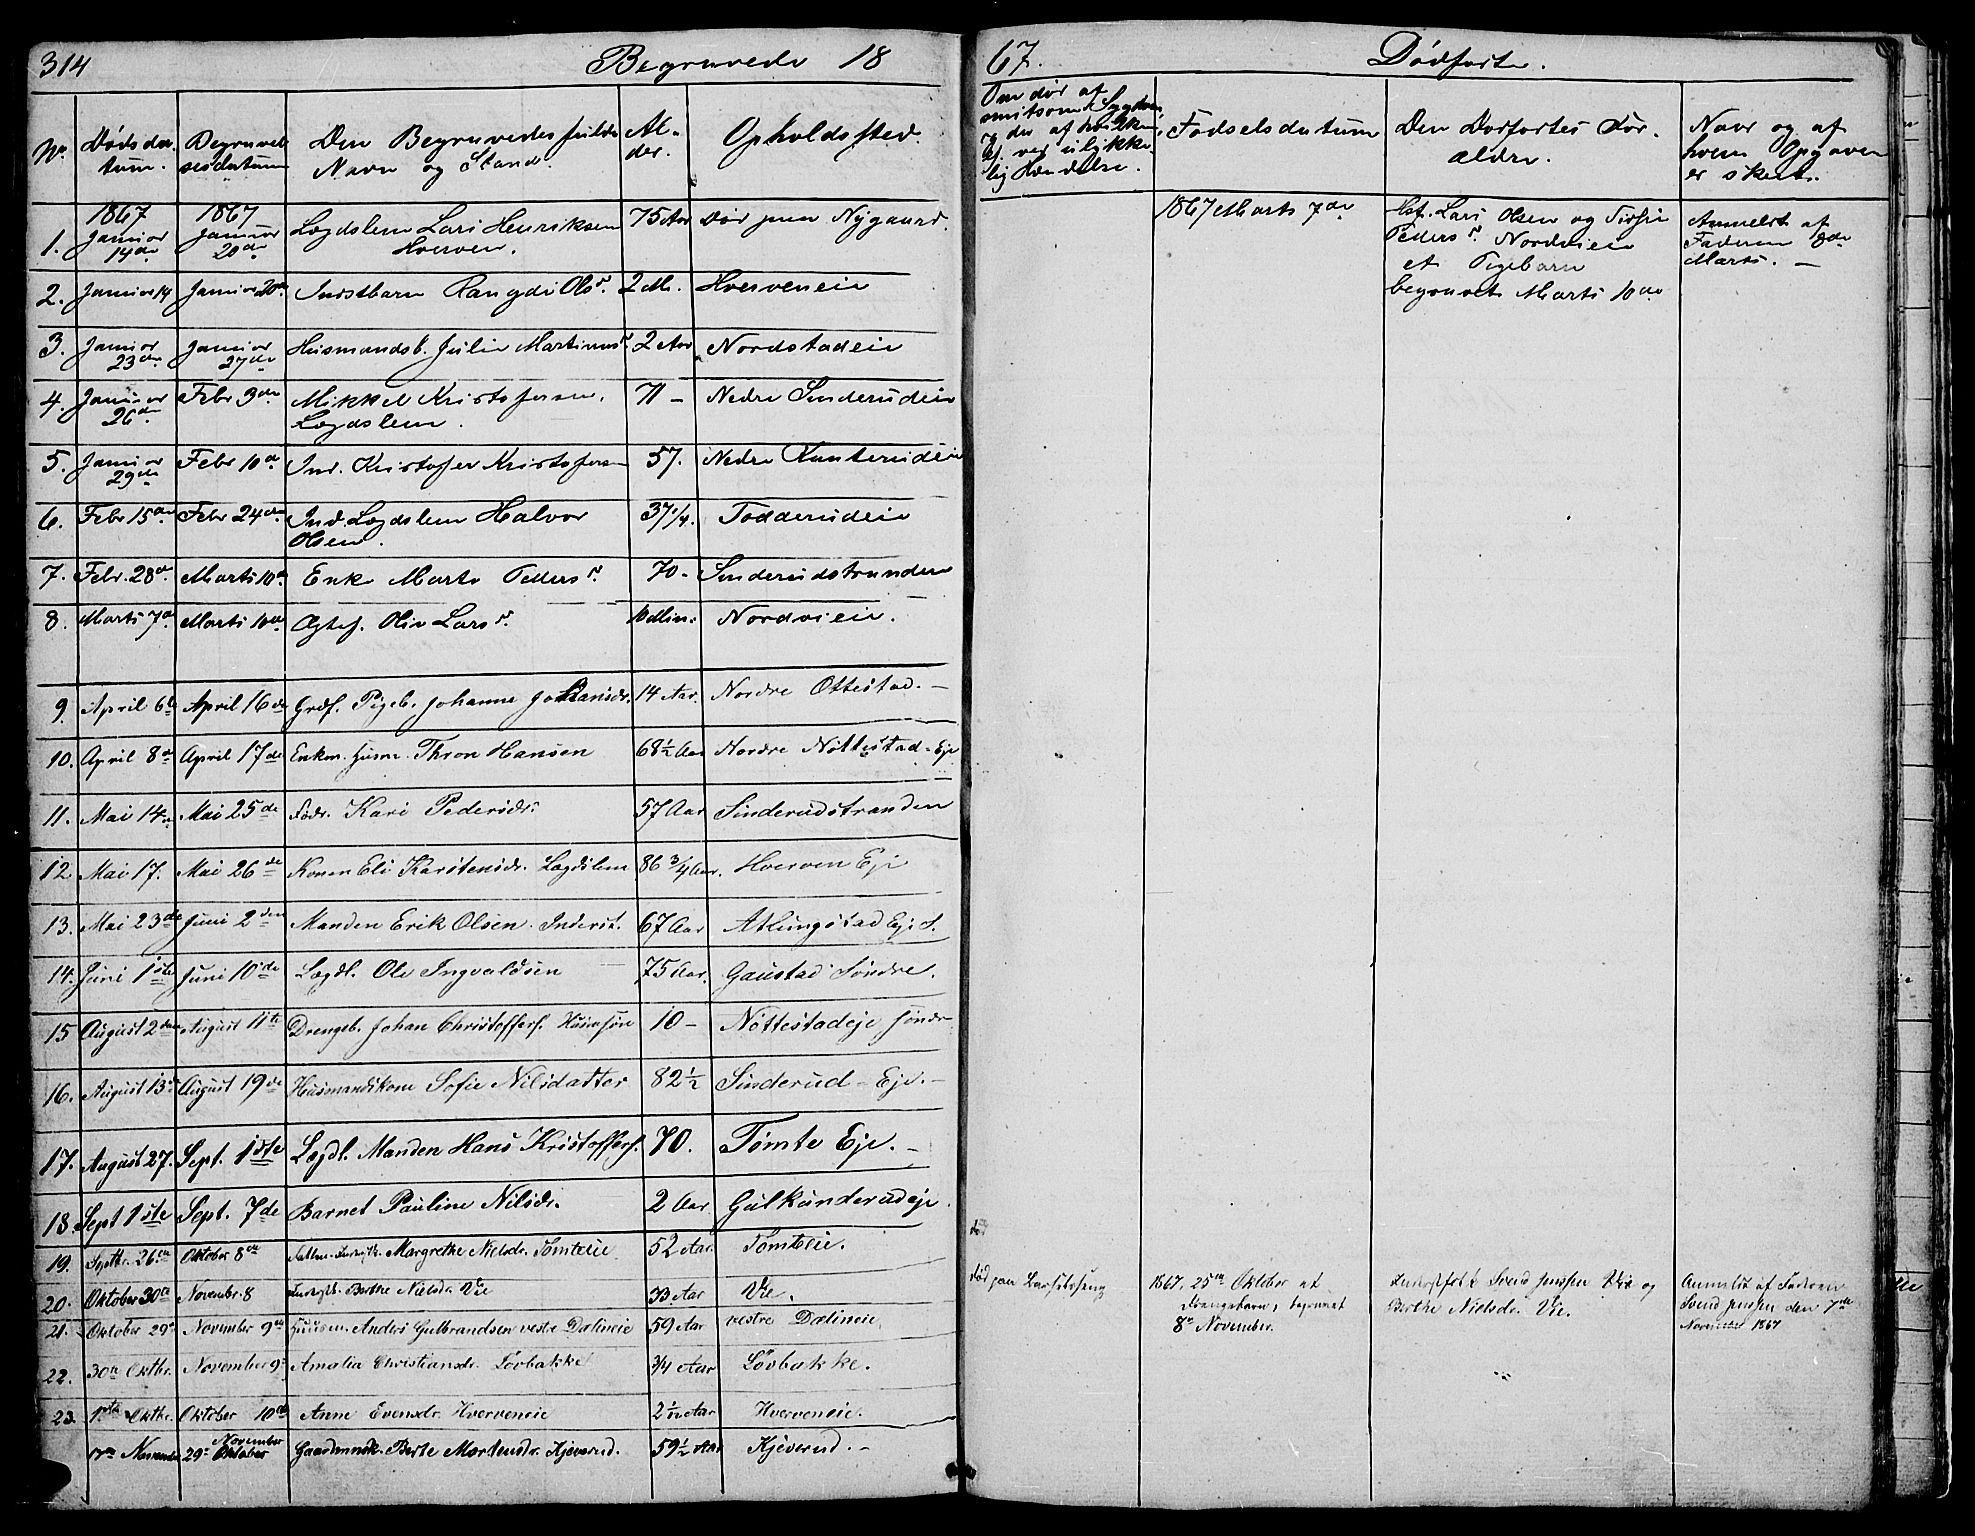 314 Begravede 18
No. Dødsdatum. Begravelsesdatum Den Begravedes fulde Navn og Stand. Alder. Opholdssted.
1. 1867 Januar 14de 1867 Januar 20de Lægdslem Lars Henriksen Hverven. 75 Aar Nygaard.
2. Januar 14 Januar 20de Indstbarn Rangdi Olsd. 2 M. Hverveneie
3. Januar 23de Januar 27de Husmandsb. Julie Martinusd. 2 Aar Nordstadeie
4. Januar 26de Febr 3de Mikkel Kristofersen. Lægdslem. 71 – Nedre Sinderudeie
5. Januar 29de Febr 10de Ind. Kristofer Kristofersen 57. Nedre
6. Febr 15de Febr 24de Ind. Lægdslem Halvor Olsen. 37 1/4. Todderudeie
7. Febr. 28de Marts 10de Enke Marte Pedersd. 70 – Sinderudstranden
8. Marts 7de Marts 10de Ægtef. Oliv Larsd. 10 Min: Nordvieie.
9. April 6te April 16de Grdf. Pigeb. Johanne Johansdr. 14 Aar. Nordre Ottestad. –
10. April 8de April 17de Enkm. Husm. Thron Hansen 68 1/2 Aar Nordre Nøttestad – Eje
11. Mai 14de Mai 25de Kari Pedersdr. 57 Aar Sinderudstranden
12. Mai 17. Mai 26de Konen Eli Karstensdr. Lægdslem 86 3/4 Aar. Hverven Eje
13. Mai 23de Juni 2den Manden Erik Olsen. Inderst. 67 Aar Atlungstad Eje S.
14. Juni 1ste Juni 10de Lægdl. Ole Ingvaldsen 75 Aar. Gaustad Søndre.
15 August 2den August 11te Drengeb. Johan Christoffers. Husmsøn 10 – Nøttestadeje søndr
16. August 13de August 19de Husmandskone Sofie Nilsdatter 82 1/2 Sinderud – Eje. –
17. August 27. Sept. 1ste Lægdl. Manden Hans Kristoffers. 70. Tømte Eje. –
18. Sept 1ste Sept. 7de Barnet Pauline Nilsdr. 2 Aar Gulkunderudeje.
19. Septbr. 26de Oktober 8de Margrethe Nielsdr. Tømteeie 52 Aar. Tømteeie.
20. Oktober 30te November 8 Berthe Nielsdr. Vie 33 Aar Vie.
21. Oktober 29de November 9de Huusm. Anders Gulbrandsen vestre Dælineie 59 Aar vestre Dælineie
22. 30te Oktbr. November 9de Amalia Christiansdr. Løvbakke 3/4 Aar Løvbakke.
23. 1ste Oktbr. Oktober 10de Anne Evensdr. Hverveneie 2 1/12 Aar Hverveneie.
November 29de November Oktober Gaardmandsk. Berte Mortensdr. Kjeverud. 59 1/2 Aar Kjeverud. –
67. Dødfødte.
Om død af smitsom Sygdom og da af hvilken, ved ulykkelig Hændelse.
Fødselsdatum
Den Dødfødtes Forældre.
Naar og af hvem Opgaven er skeet.
1867 Marts 7de
Lars Olsen og
Pedersd. Nordvieie
et Pigebarn
begravet Marts 10de
Anmeldt af
Faderen 8de
Marts. –
Død paa Barselseng
1867, 25de Oktober et
Drengebarn, begravet
8de November.
Svend Jensen Vie og
Berthe Nielsdr. Vie.
Anmeldt af Faderen
Svend Jensen den 7de
November 1867